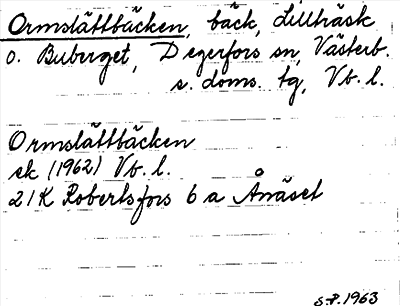 Ormslättbäcken, bäck, Lillträsk
o. Buberget, Degerfors sn, Västerb.
s. doms. tg, Vb. l.
Ormslättbäcken
ek (1962) Vb. l.
21K Robertsfors 6a Ånäset
S.P. 1963